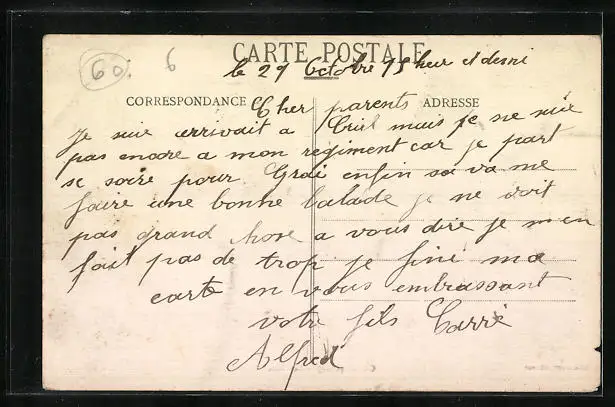 60. 6
CARTE POSTALE
le 29 Octobre 15 heur et demi
CORRESPONDANCE ADRESSE
Cher parents
Je suie errivait a Creil mais je ne suie
pas encore a mon regiment car je part
se soire pour Grai enfin sa va me
faire une bonne balade je ne voit
pas grand chose a vous dire je men
fait pas de trop je fini ma
carte en vous embrassant
votre fils Carrié
Alfred